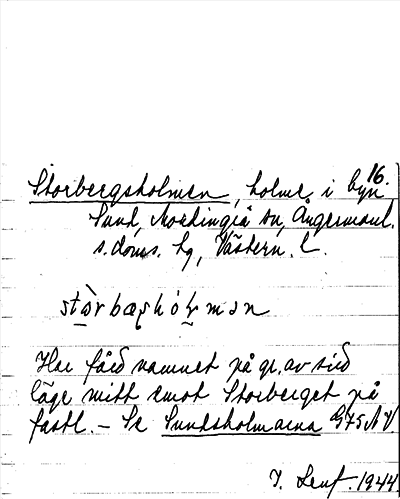 16.
Storbergsholmen, holme i byn
Sund, Nordingrå sn, Ångermanl.
s. doms. hg, Västern. l.
stòrbærhólmən
Har fått namnet på gr. av sitt
läge mitt emot Storberget på
fastl. – Se Sundsholmarna G75 NV.
1944